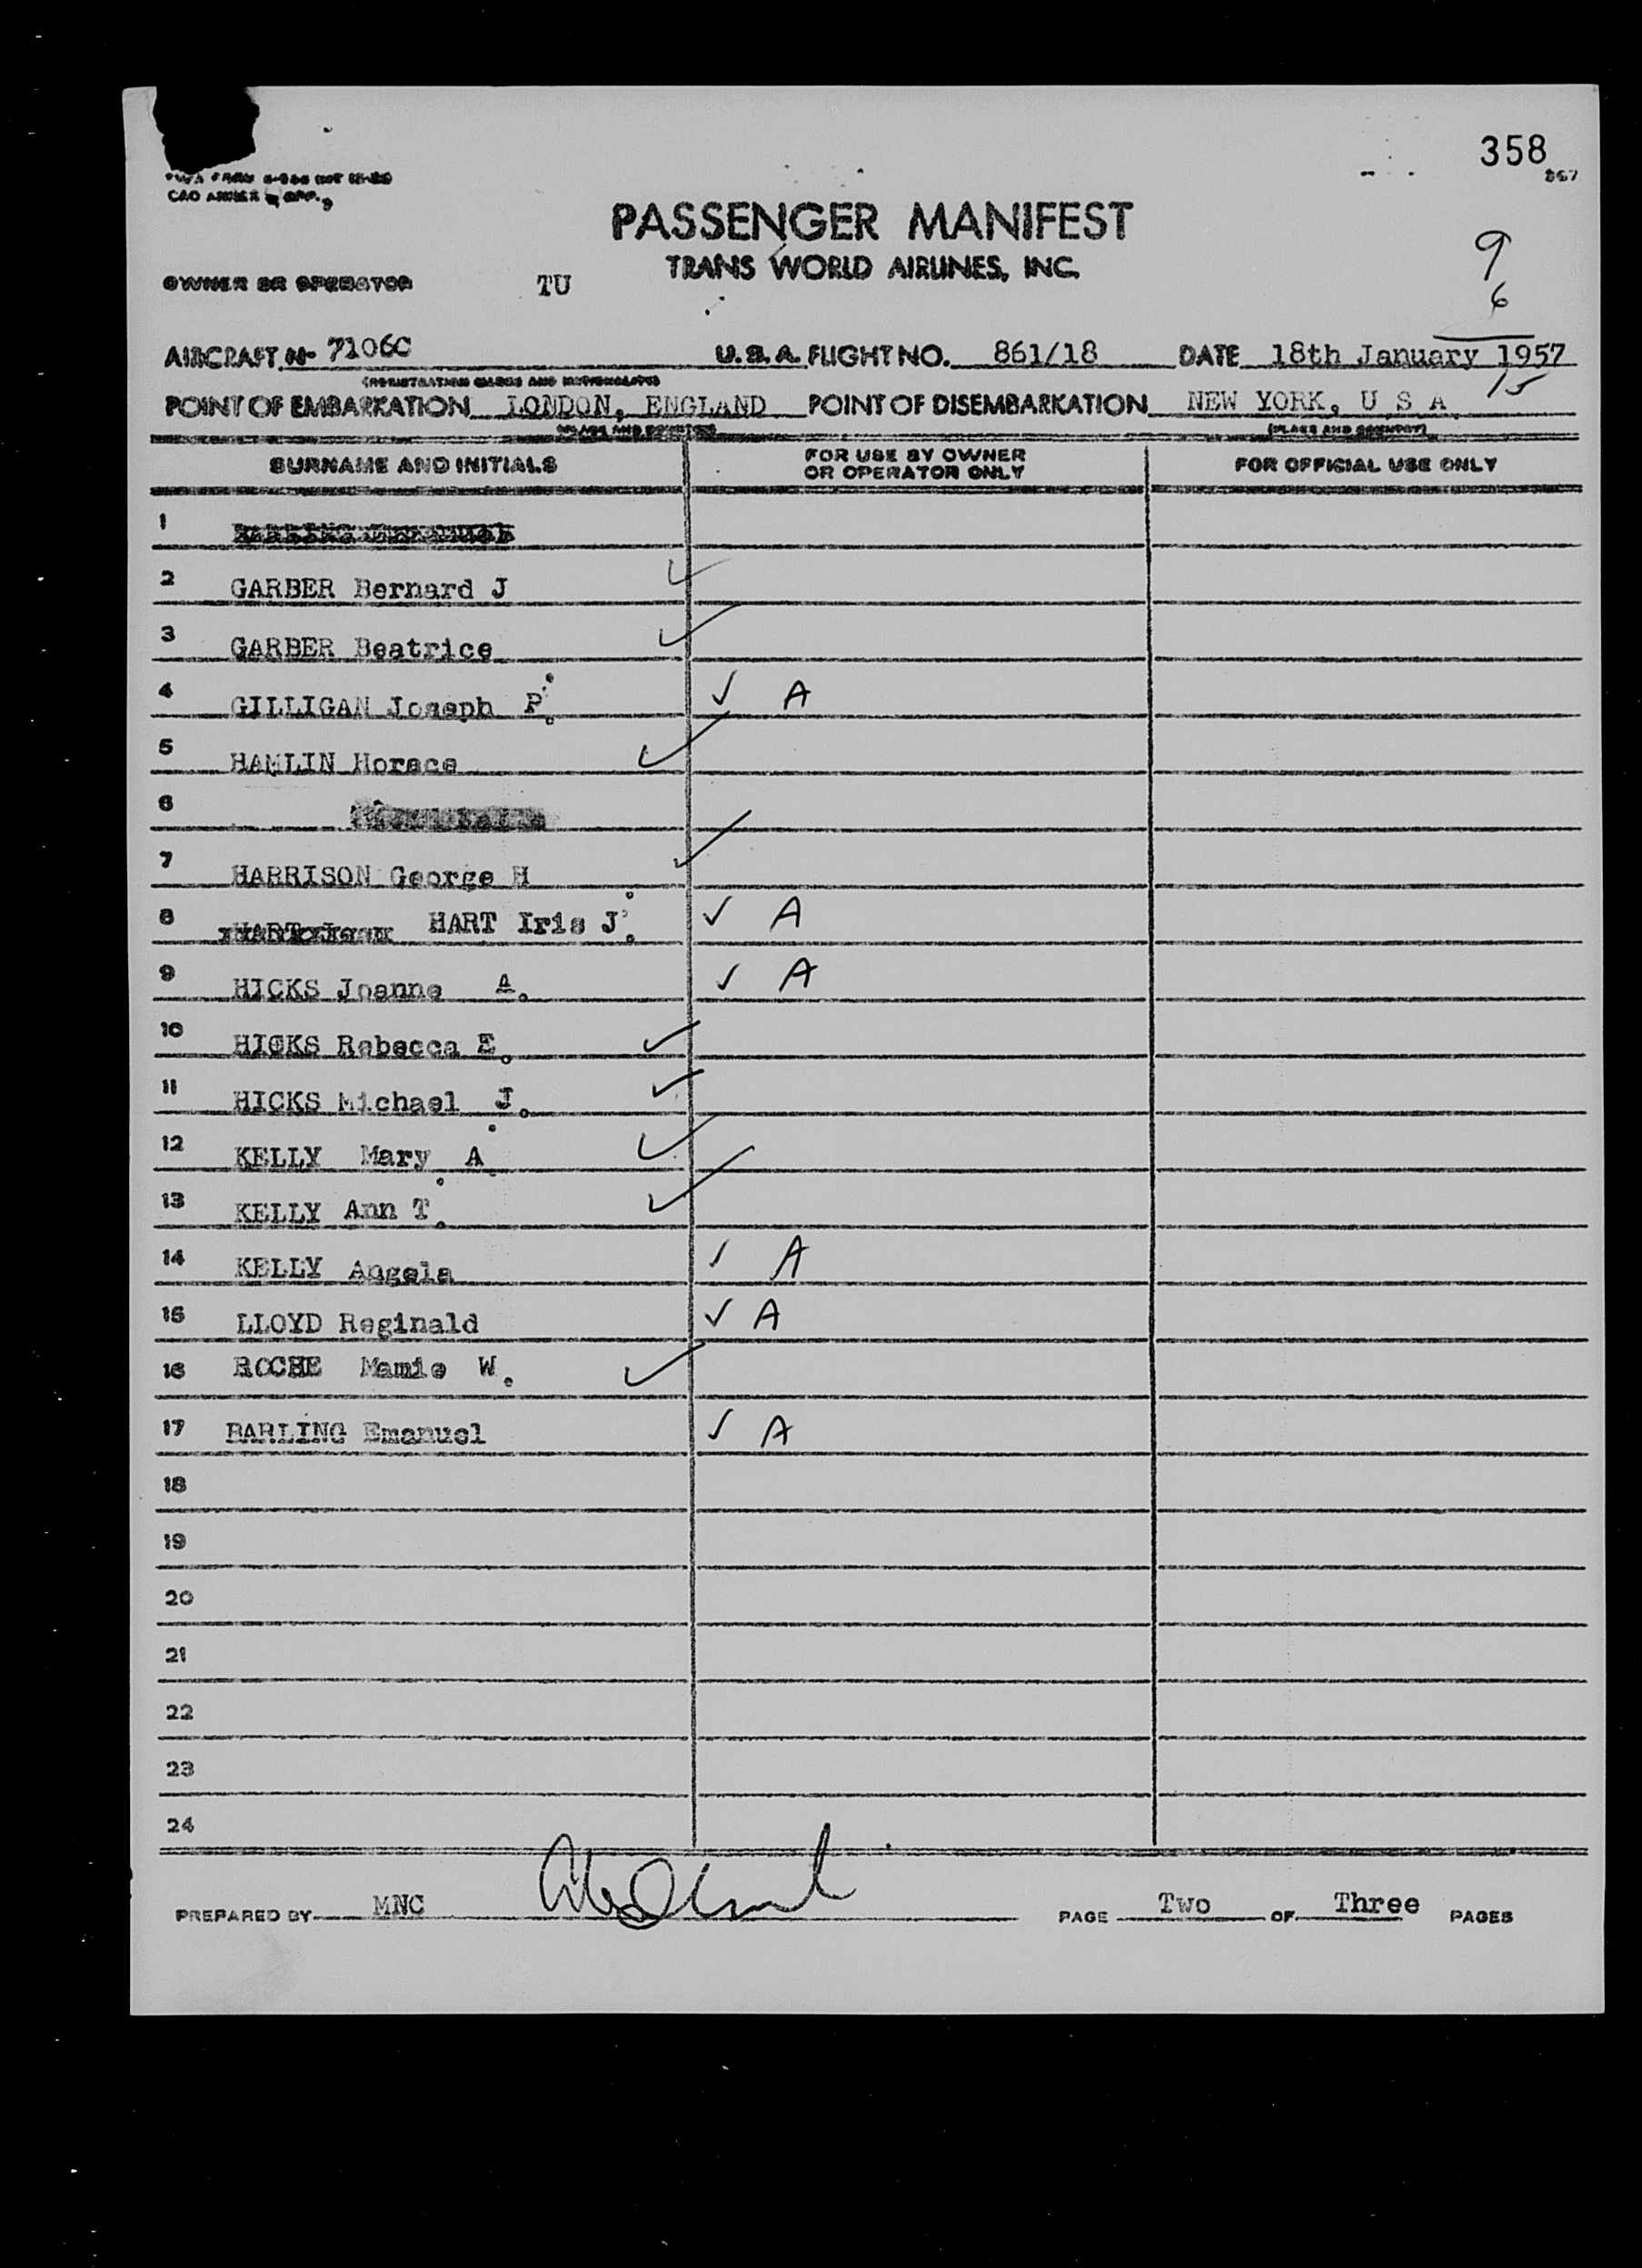 358
CAO
PASSENGER MANIFEST
TRANS WORLD AIRLINES, INC.
9
6
OWNER OR OPERATOR TU
AIRCRAFT N- 7106C U.S.A. FLIGHT NO. 861/18 DATE 18th January 1957
(REGISTRATION MARKS AND NATIONALITY)
15
POINT OF EMBARKATION LONDON, ENGLAND POINT OF DISEMBARKATION NEW YORK, U S A
(PLACE AND COUNTRY) (PLACE AND COUNTRY)
SURNAME AND INITIALS FOR USE BY OWNER OR OPERATOR ONLY FOR OFFICIAL USE ONLY
1
2 GARBER Bernard J ✓
3 GARBER Beatrice ✓
4 GILLIGAN Joseph P. ✓ A
5 HAMLIN Horace ✓
6
7 HARRISON George H ✓
8 HART Iris J. ✓ A
9 HICKS Joanne A. ✓ A
10 HICKS Rebecca E. ✓
11 HICKS Michael J. ✓
12 KELLY Mary A. ✓
13 KELLY Ann T. ✓
14 KELLY Angela ✓ A
15 LLOYD Reginald ✓ A
16 ROCHE Mamie W. ✓
17 BARLING Emanuel ✓ A
18
19
20
21
22
23
24
PREPARED BY MNC PAGE Two OF Three PAGES